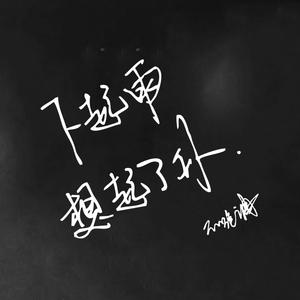 下起雨
想起了你.